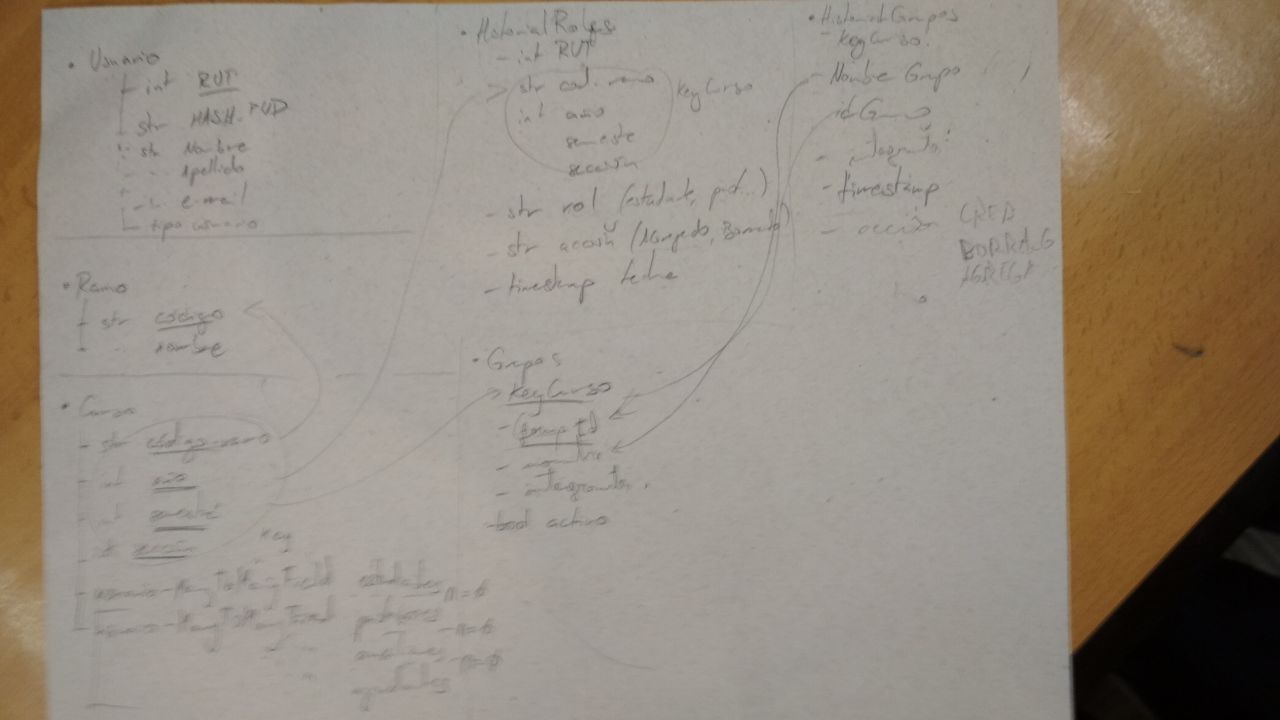 • Usuario
- int RUT
- str HASH-PWD
- str Nombre
Apellido
e-mail
tipo usuario
• Ramo
- str código
- nombre
• Curso
- str código-ramo
- int año
- int semestre
- sección
Key
- usuario-ManyToManyField estudiantes
- usuario-ManyToManyField profesores
auxiliares
ayudantes
• Historial Roles
- int RUT
str cod. ramo
int año
semestre
sección
KeyCurso
- str rol (estudiante, prof...)
- str acción
- timestamp fecha
• Grupos
- KeyCurso
- Group Id
- nombre
- integrantes.
- bool activo
• Historial Grupos
- KeyCurso.
- Nombre Grupo
- id Grupo
- integrante
- timestamp
- acción